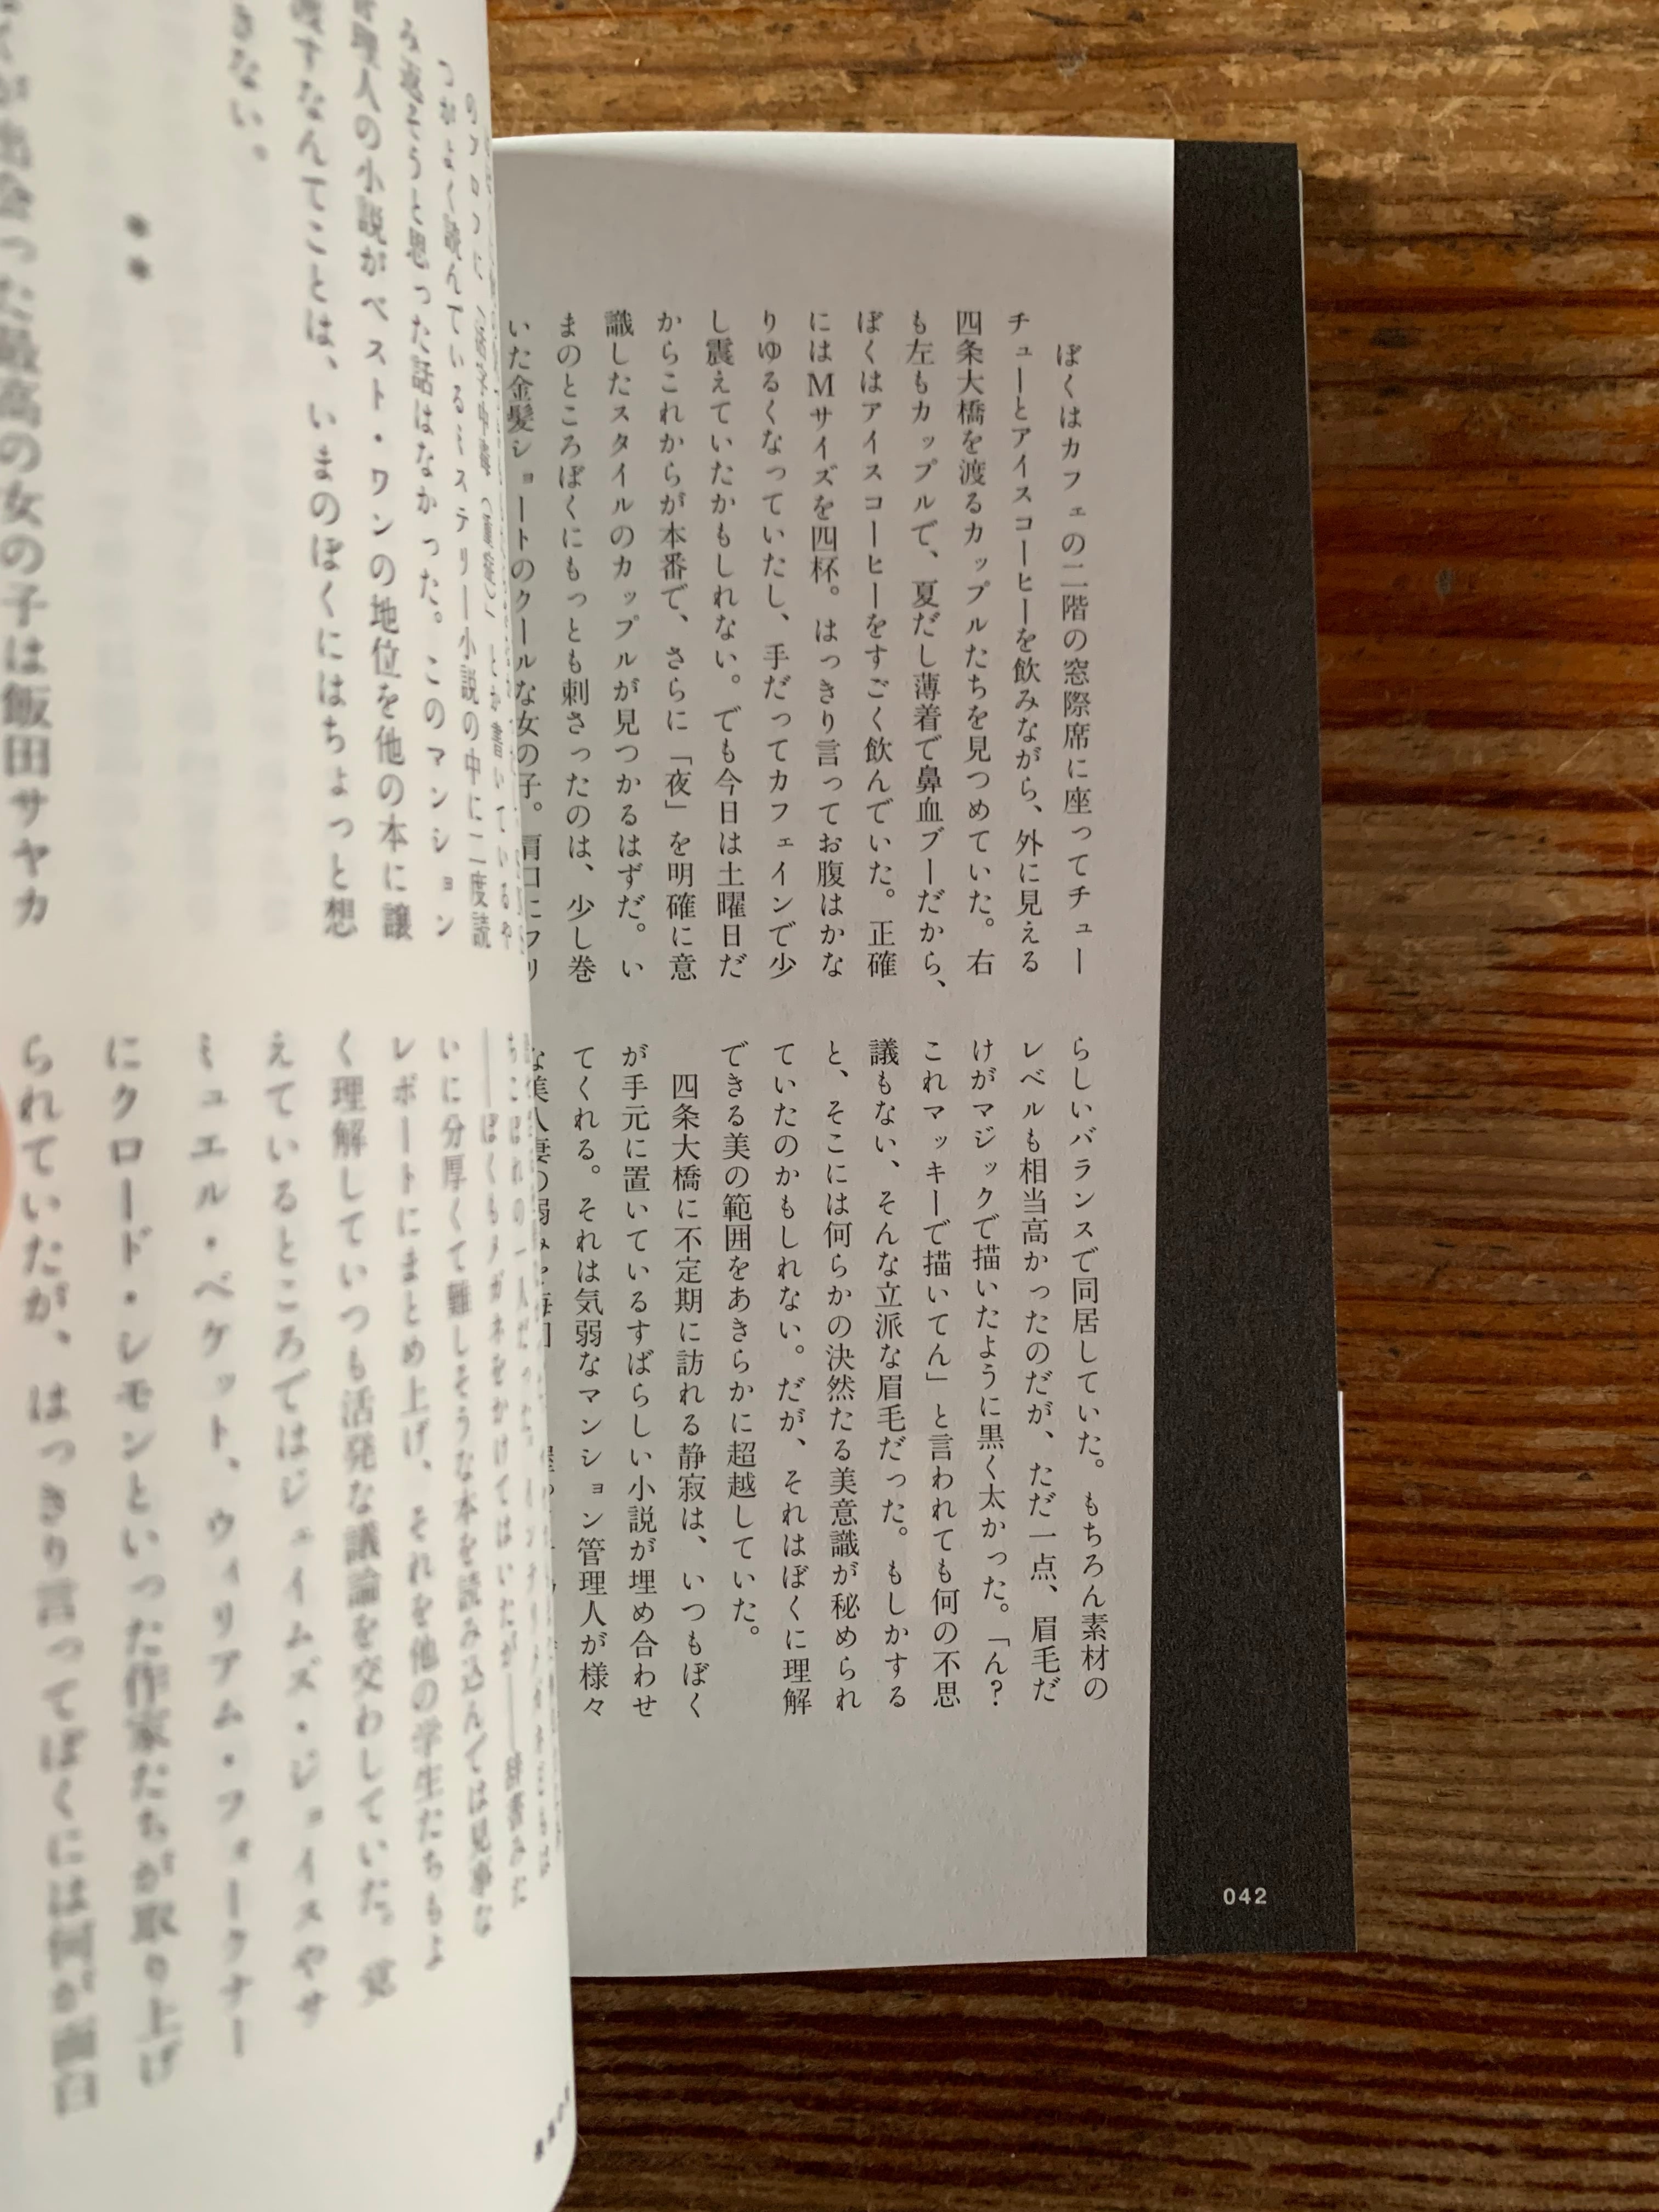 ぼくはカフェの二階の窓際席に座ってチュー
チューとアイスコーヒーを飲みながら、外に見える
四条大橋を渡るカップルたちを見つめていた。右
も左もカップルで、夏だし薄着で鼻血ブーだから、
ぼくはアイスコーヒーをすごく飲んでいた。正確
にはMサイズを四杯。はっきり言ってお腹はかな
りゆるくなっていたし、手だってカフェインで少
し震えていたかもしれない。でも今日は土曜日だ
からこれからが本番で、さらに「夜」を明確に意
識したスタイルのカップルが見つかるはずだ。い
まのところぼくにもっとも刺さったのは、少し巻
いた金髪ショートのクールな女の子。肩口にフリ
らしいバランスで同居していた。もちろん素材の
レベルも相当高かったのだが、ただ一点、眉毛だ
けがマジックで描いたように黒く太かった。「ん?
これマッキーで描いてん」と言われても何の不思
議もない、そんな立派な眉毛だった。もしかする
と、そこには何らかの決然たる美意識が秘められ
ていたのかもしれない。だが、それはぼくに理解
できる美の範囲をあきらかに超越していた。
四条大橋に不定期に訪れる静寂は、いつもぼく
が手元に置いているすばらしい小説が埋め合わせ
てくれる。それは気弱なマンション管理人が様々
な美人妻の弱みを
042
つがよく読んでいるミステリー小説の中に二度読
み返そうと思った話はなかった。このマンション
管理人の小説がベスト・ワンの地位を他の本に譲
渡すなんてことは、いまのぼくにはちょっと想
きない。
**
が出会った最高の女の子は飯田サヤカ
――ぼくもメガネをかけてはいたが――辞書みに
いに分厚くて難しそうな本を読み込んでは見事な
レポートにまとめ上げ、それを他の学生たちもよ
く理解していつも活発な議論を交わしていた。覚
えているところではジェイムズ・ジョイスやサ
ミュエル・ベケット、ウィリアム・フォークナー
にクロード・シモンといった作家たちが取り上げ
られていたが、はっきり言ってぼくには何が面白